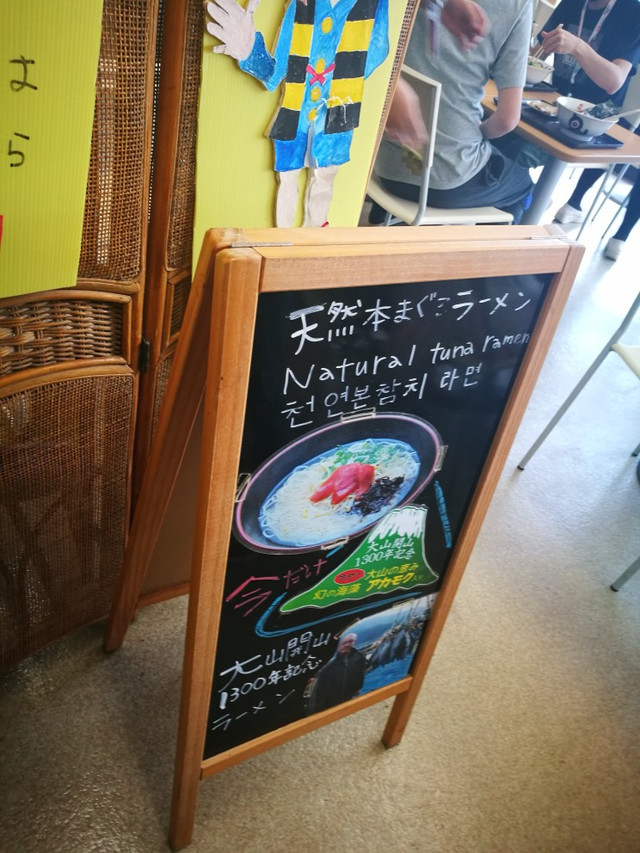 はら
天然本まぐろラーメン
Natural tuna ramen
천연본참치 라면
大山開山
1300年記念
大山の恵み
幻の海藻 アカモク入り
今だけ
大山開山
1300年記念
ラーメン